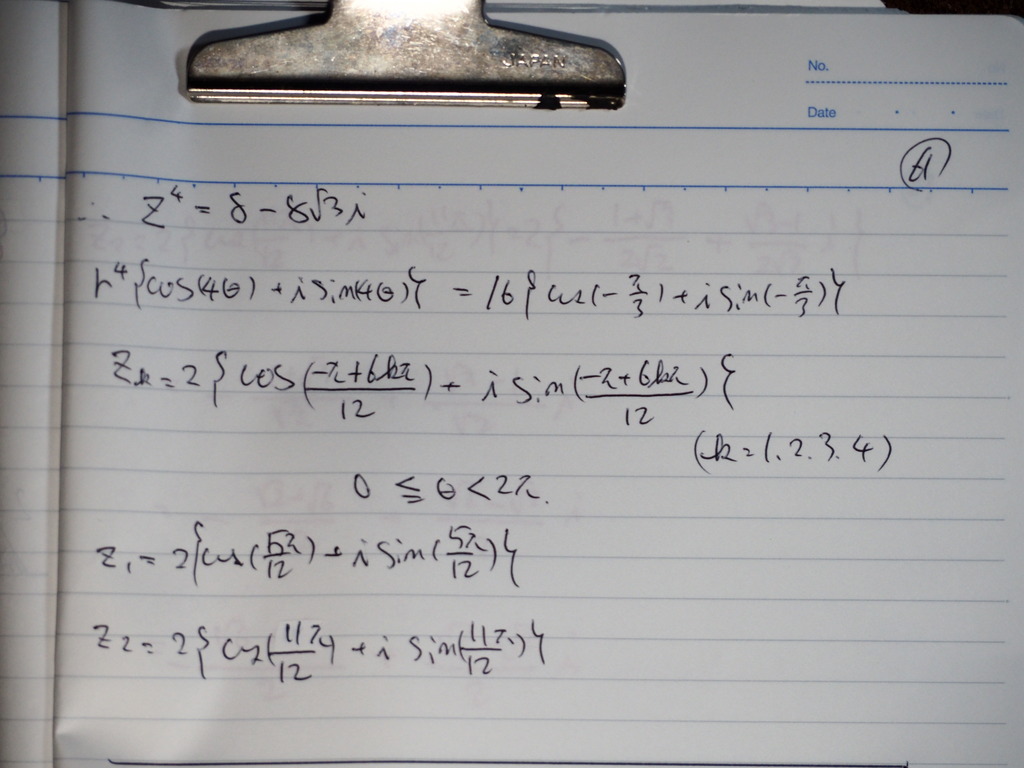 JAPAN
No.
Date
A
∴ z⁴ = 8 - 8√3 i
r⁴{cos(4θ) + i sin(4θ)} = 16{cos(-π/3) + i sin(-π/3)}
z_k = 2{cos((-π+6kπ)/12) + i sin((-π+6kπ)/12)}
(k=1.2.3.4)
0 ≦ θ < 2π.
z₁ = 2{cos(5π/12) + i sin(5π/12)}
z₂ = 2{cos(11π/12) + i sin(11π/12)}